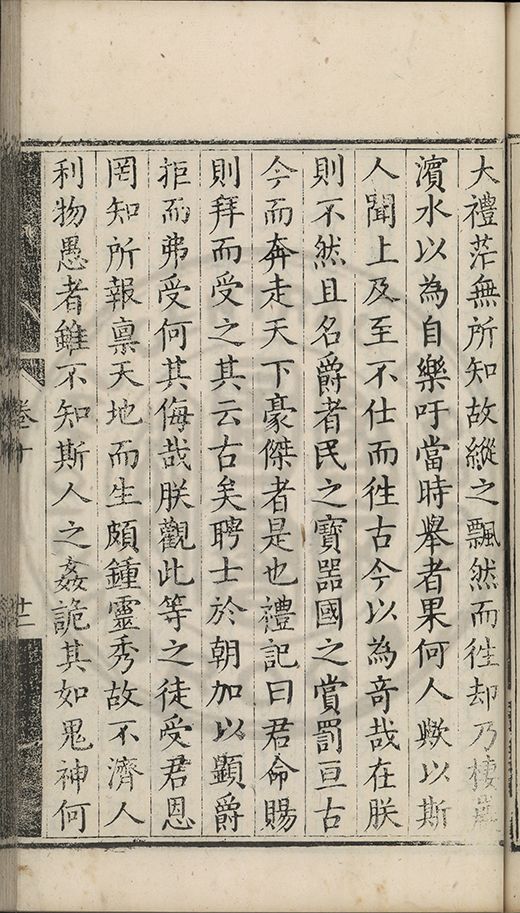 大禮茫無所知故縱之飄然而徃却乃棲巖
濱水以為自樂吁當時舉者果何人歟以斯
人聞上及至不仕而徃古今以為竒哉在朕
則不然且名爵者民之寶噐國之賞罰亘古
今而奔走天下豪傑者是也禮記曰君命賜
則拜而受之其云古矣聘士於朝加以顯爵
拒而弗受何其侮哉朕觀此等之徒受君恩
罔知所報禀天地而生頗鍾靈秀故不濟人
利物愚者雖不知斯人之姦詭其如鬼神何
卷十
廿一